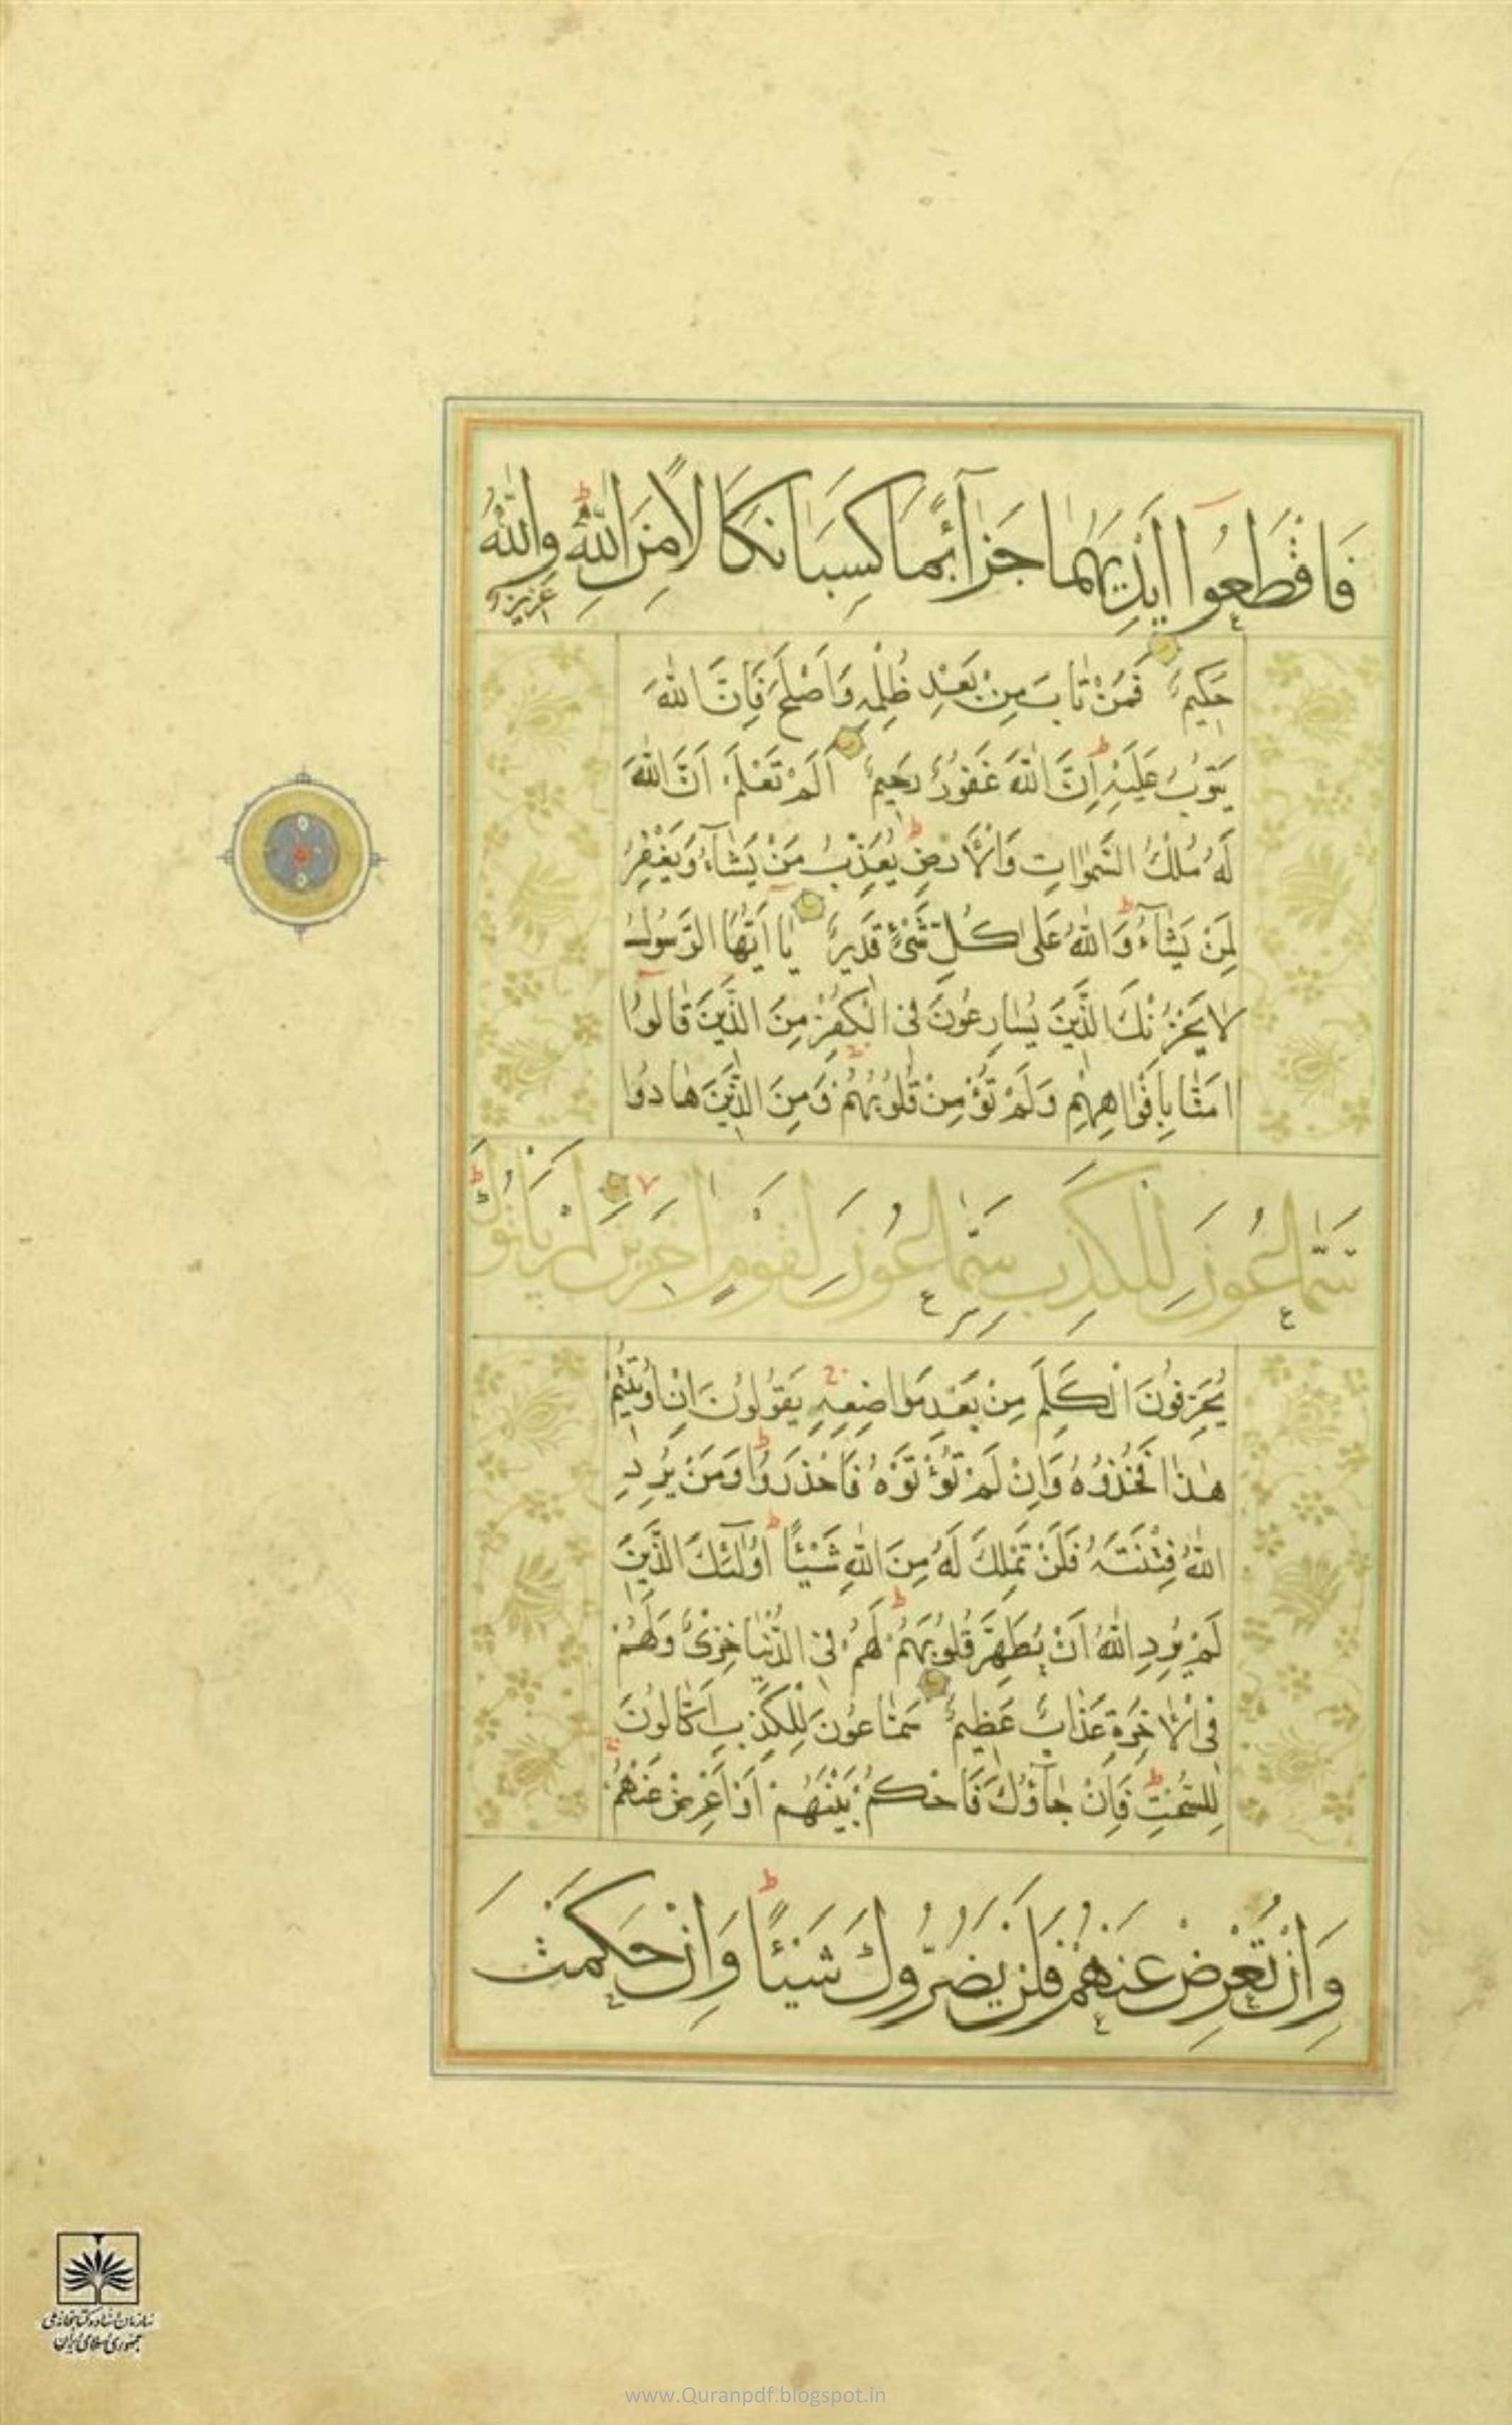 فَاقْطَعُوا اَيْدِيَهُمَا جَزَآءً بِمَا كَسَبَا نَكَالًا مِنَ اللّٰهِ وَاللّٰهُ عَزِيزٌ
حَكِيمٌ فَمَنْ تَابَ مِنْ بَعْدِ ظُلْمِهِ وَاَصْلَحَ فَاِنَّ اللّٰهَ
يَتُوبُ عَلَيْهِ اِنَّ اللّٰهَ غَفُورٌ رَحِيمٌ اَلَمْ تَعْلَمْ اَنَّ اللّٰهَ
لَهُ مُلْكُ السَّمٰوَاتِ وَالْاَرْضِ يُعَذِّبُ مَنْ يَشَآءُ وَيَغْفِرُ
لِمَنْ يَشَآءُ وَاللّٰهُ عَلٰى كُلِّ شَىْءٍ قَدِيرٌ يَا اَيُّهَا الرَّسُولُ
لَا يَحْزُنْكَ الَّذِينَ يُسَارِعُونَ فِى الْكُفْرِ مِنَ الَّذِينَ قَالُوا
امَنَّا بِاَفْوَاهِهِمْ وَلَمْ تُؤْمِنْ قُلُوبُهُمْ وَمِنَ الَّذِينَ هَادُوا
سَمَّاعُونَ لِلْكَذِبِ سَمَّاعُونَ لِقَوْمٍ اخَرِينَ لَمْ يَاْتُوكَ
يُحَرِّفُونَ الْكَلِمَ مِنْ بَعْدِ مَوَاضِعِهِ يَقُولُونَ اِنْ اُوتِيتُمْ
هٰذَا فَخُذُوهُ وَاِنْ لَمْ تُؤْتَوْهُ فَاحْذَرُوا وَمَنْ يُرِدِ
اللّٰهُ فِتْنَتَهُ فَلَنْ تَمْلِكَ لَهُ مِنَ اللّٰهِ شَيْئًا اُولٰٓئِكَ الَّذِينَ
لَمْ يُرِدِ اللّٰهُ اَنْ يُطَهِّرَ قُلُوبَهُمْ لَهُمْ فِى الدُّنْيَا خِزْىٌ وَلَهُمْ
فِى الْاخِرَةِ عَذَابٌ عَظِيمٌ سَمَّاعُونَ لِلْكَذِبِ اَكَّالُونَ
لِلسُّحْتِ فَاِنْ جَآؤُكَ فَاحْكُمْ بَيْنَهُمْ اَوْ اَعْرِضْ عَنْهُمْ
وَاِنْ تُعْرِضْ عَنْهُمْ فَلَنْ يَضُرُّوكَ شَيْئًا وَاِنْ حَكَمْتَ
سازمان اسناد و کتابخانه ملی
جمهوری اسلامی ایران
www.Quranpdf.blogspot.in